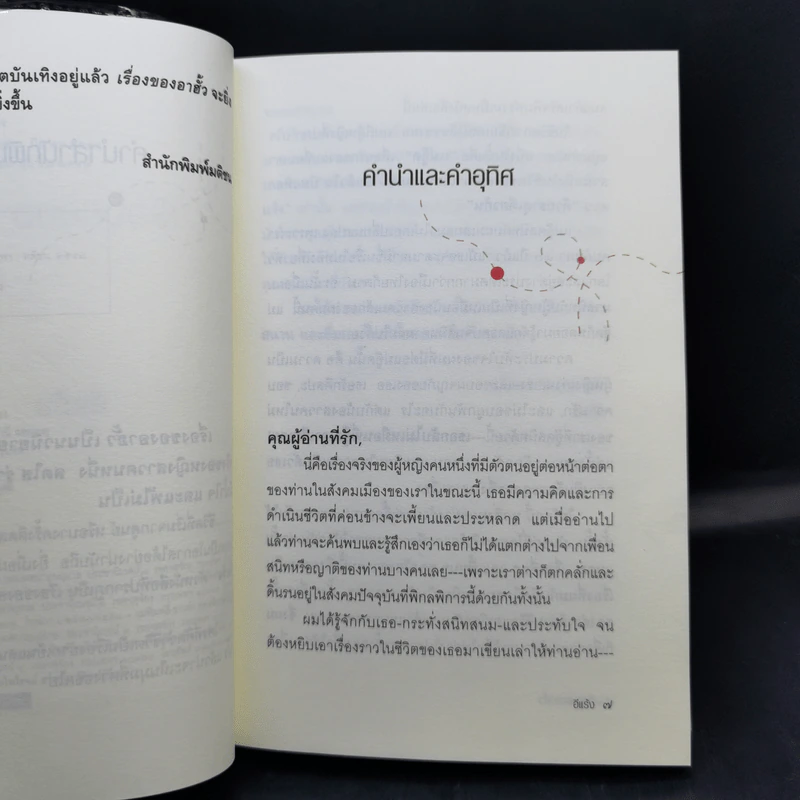 ตบันเทิงอยู่แล้ว เรื่องของอาฮั้ว จะยิ่ง
ขึ้น
สำนักพิมพ์มติชน
คำนำและคำอุทิศ
คุณผู้อ่านที่รัก,
นี่คือเรื่องจริงของผู้หญิงคนหนึ่งที่มีตัวตนอยู่ต่อหน้าต่อตา
ของท่านในสังคมเมืองของเราในขณะนี้ เธอมีความคิดและการ
ดำเนินชีวิตที่ค่อนข้างจะเพี้ยนและประหลาด แต่เมื่ออ่านไป
แล้วท่านจะค้นพบและรู้สึกเองว่าเธอก็ไม่ได้แตกต่างไปจากเพื่อน
สนิทหรือญาติของท่านบางคนเลย---เพราะเราต่างก็ตกคลั่กและ
ดิ้นรนอยู่ในสังคมปัจจุบันที่พิกลพิการนี้ด้วยกันทั้งนั้น
ผมได้รู้จักกับเธอ-กระทั่งสนิทสนม-และประทับใจ จน
ต้องหยิบเอาเรื่องราวในชีวิตของเธอมาเขียนเล่าให้ท่านอ่าน---
อีแร้ง ๗